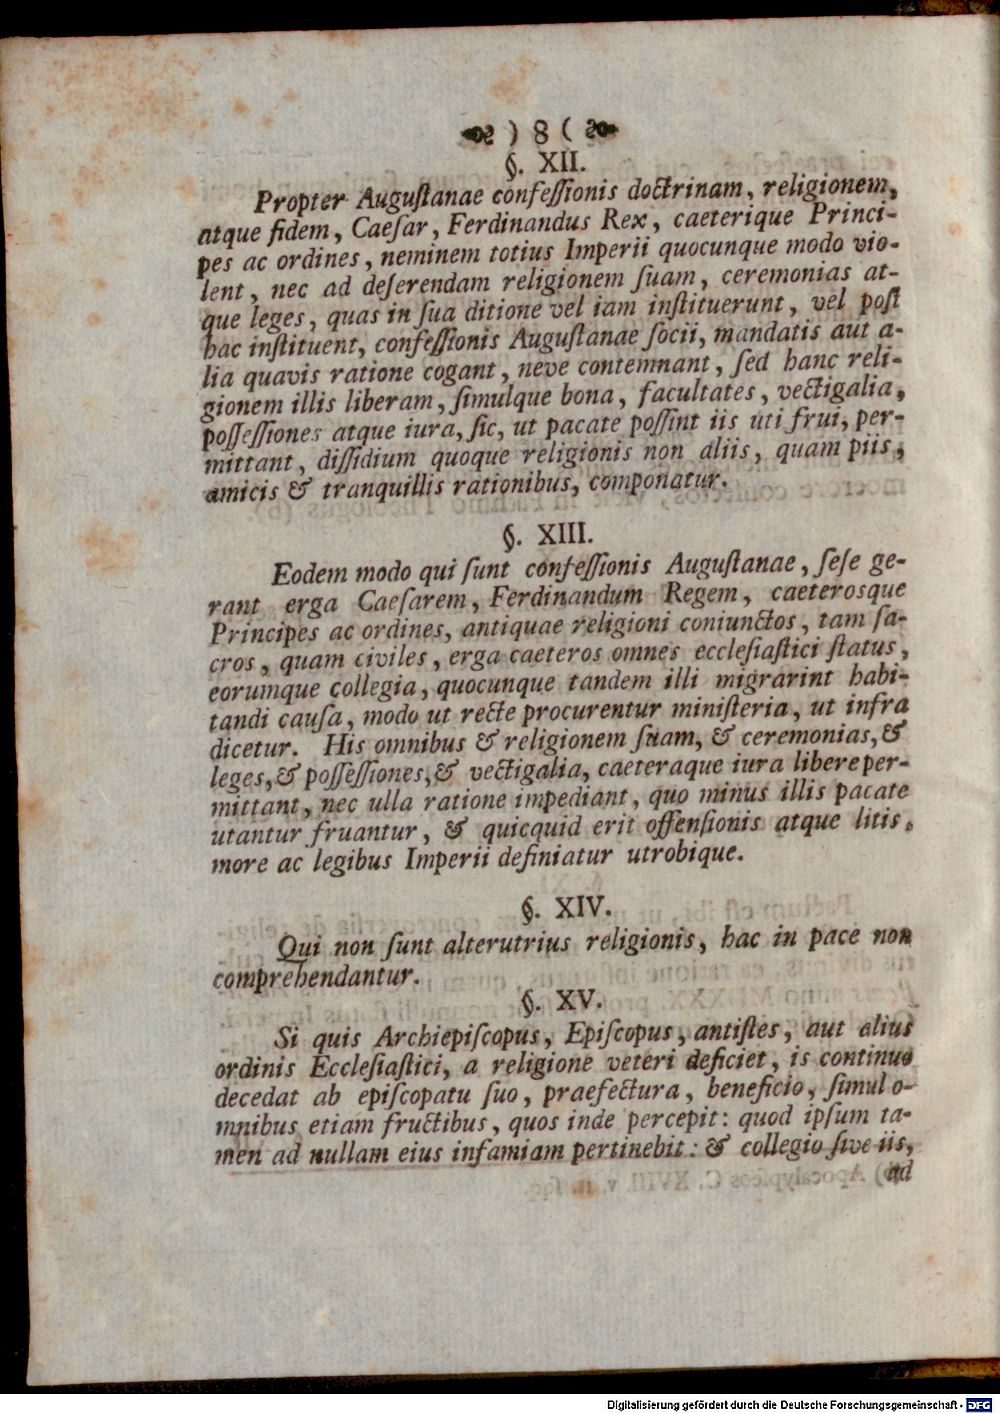 ) 8 (
§. XII.
Propter Auguſtanae confeſſionis doctrinam, religionem,
atque fidem, Caeſar, Ferdinandus Rex, caeterique Princi-
pes ac ordines, neminem totius Imperii quocunque modo vio-
lent, nec ad deſerendam religionem ſuam, ceremonias at-
que leges, quas in ſua ditione vel iam inſtituerunt, vel poſt
hac inſtituent, confeſſionis Auguſtanae ſocii, mandatis aut a-
lia quavis ratione cogant, neve contemnant, ſed hanc reli-
gionem illis liberam, ſimulque bona, facultates, vectigalia,
poſſeſſiones atque iura, ſic, ut pacate poſſint iis uti frui, per-
mittant, diſſidium quoque religionis non aliis, quam piis,
amicis & tranquillis rationibus, componatur.
§. XIII.
Eodem modo qui ſunt confeſſionis Auguſtanae, ſeſe ge-
rant erga Caeſarem, Ferdinandum Regem, caeterosque
Principes ac ordines, antiquae religioni coniunctos, tam ſa-
cros, quam civiles, erga caeteros omnes eccleſiaſtici ſtatus,
eorumque collegia, quocunque tandem illi migrarint habi-
tandi cauſa, modo ut recte procurentur miniſteria, ut infra
dicetur. His omnibus & religionem ſuam, & ceremonias, &
leges, & poſſeſſiones, & vectigalia, caeteraque iura libere per-
mittant, nec ulla ratione impediant, quo minus illis pacate
utantur fruantur, & quicquid erit offenſionis atque litis,
more ac legibus Imperii definiatur utrobique.
§. XIV.
Qui non ſunt alterutrius religionis, hac in pace non
comprehendantur.
§. XV.
Si quis Archiepiſcopus, Epiſcopus, antiſtes, aut alius
ordinis Eccleſiaſtici, a religione veteri deficiet, is continuo
decedat ab epiſcopatu ſuo, praefectura, beneficio, ſimul o-
mnibus etiam fructibus, quos inde percepit: quod ipſum ta-
men ad nullam eius infamiam pertinebit: & collegio ſive iis,
ad
Digitalisierung gefördert durch die Deutsche Forschungsgemeinschaft - DFG